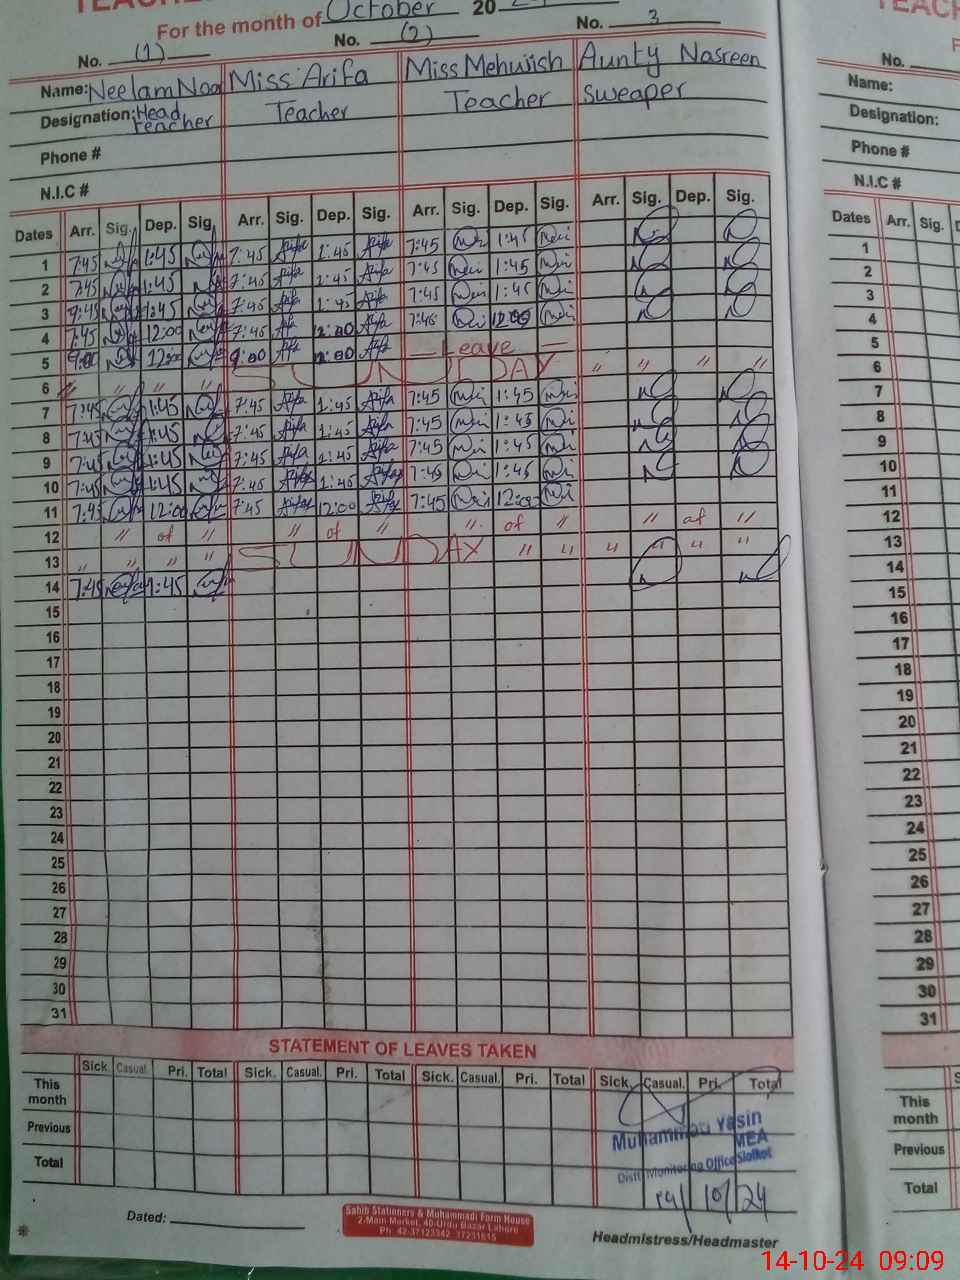 TEACHE
For the month of October 20
No. (1) No. (2) No. 3
Name: Neelam Noo Miss Arifa Miss Mehwish Aunty Nasreen
Designation: Head teacher Teacher Teacher sweaper
Phone #
N.I.C #
Dates Arr. Sig. Dep. Sig. Arr. Sig. Dep. Sig. Arr. Sig. Dep. Sig. Arr. Sig. Dep. Sig.
1 7:45 1:45 7:45 Arifa 1:45 Arifa 7:45 1:45
2 7:45 1:45 7:45 Arifa 1:45 Arifa 7:45 1:45
3 7:45 1:45 7:45 Arifa 1:45 Arifa 7:45 1:45
4 7:45 12:00 7:45 12:00 Arifa 7:45 12:00
5 9:00 12:00 9:00 12:00 Arifa — Leave —
6 " " " " SUNDAY " " " "
7 7:45 1:45 7:45 Arifa 1:45 Arifa 7:45 1:45
8 7:45 1:45 7:45 Arifa 1:45 Arifa 7:45 1:45
9 7:45 1:45 7:45 Arifa 1:45 Arifa 7:45 1:45
10 7:45 1:45 7:45 1:45 7:45 1:45
11 7:45 12:00 7:45 12:00 7:45 12:00
12 " of " " of " " of " " of "
13 " " " SUNDAY " " " " " "
14 7:45 1:45
15
16
17
18
19
20
21
22
23
24
25
26
27
28
29
30
31
STATEMENT OF LEAVES TAKEN
Sick. Casual. Pri. Total Sick. Casual. Pri. Total Sick. Casual. Pri. Total Sick. Casual. Pri. Total
This month
Previous
Total
Muhammad Yasin
MEA
Distt: Monitoring Office Sialkot
14/10/24
Dated:
Sabib Stationers & Muhammadi Form House
2-Main Market, 40-Urdu Bazar Lahore
Ph: 42-37123342 37231615
Headmistress/Headmaster
TEACH
F
No.
Name:
Designation:
Phone #
N.I.C #
Dates Arr. Sig. D
1
2
3
4
5
6
7
8
9
10
11
12
13
14
15
16
17
18
19
20
21
22
23
24
25
26
27
28
29
30
31
S
This month
Previous
Total
14-10-24 09:09